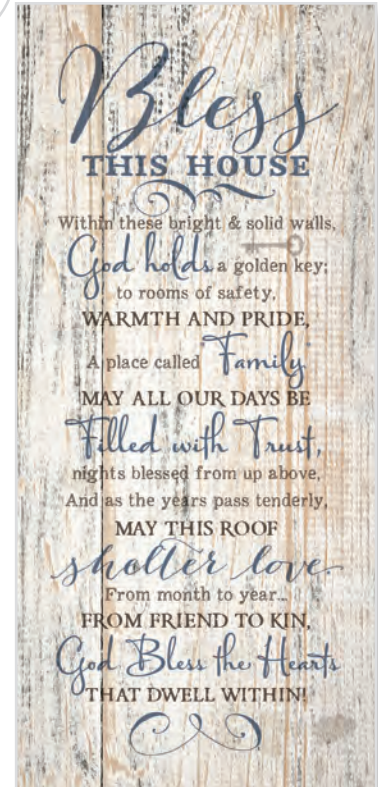 Bless
THIS HOUSE
Within these bright & solid walls,
God holds a golden key;
to rooms of safety,
WARMTH AND PRIDE,
A place called Family.
MAY ALL OUR DAYS BE
Filled with Trust,
nights blessed from up above,
And as the years pass tenderly,
MAY THIS ROOF
shelter love.
From month to year...
FROM FRIEND TO KIN,
God Bless the Hearts
THAT DWELL WITHIN!